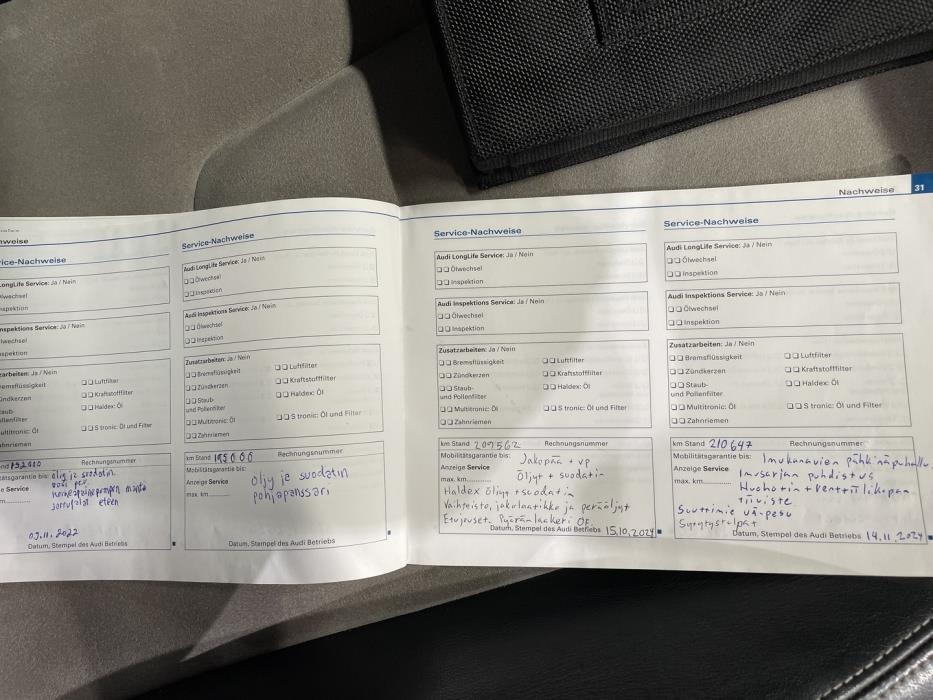 Nachweise 31
weise
ice-Nachweise
LongLife Service: Ja / Nein
lwechsel
spektion
nspektions Service: Ja / Nein
wechsel
spektion
arbeiten: Ja / Nein
remsflüssigkeit
ündkerzen
aub-
ollenfilter
ultitronic: Öl
ahnriemen
Luftfilter
Kraftstofffilter
Haldex: Öl
S tronic: Öl und Filter
Rechnungsnummer
tsgarantie bis: öljy ja suodatin
e Service
jarrupalat eteen
03.11.2022
Datum, Stempel des Audi Betriebs
Service-Nachweise
Audi LongLife Service: Ja / Nein
Ölwechsel
Inspektion
Audi Inspektions Service: Ja / Nein
Ölwechsel
Inspektion
Zusatzarbeiten: Ja / Nein
Bremsflüssigkeit
Zündkerzen
Staub-
und Pollenfilter
Multitronic: Öl
Zahnriemen
Luftfilter
Kraftstofffilter
Haldex: Öl
S tronic: Öl und Filter
km Stand 195000 Rechnungsnummer
Mobilitätsgarantie bis:
Anzeige Service öljy je suodatin
max. km pohjapanssari
Datum, Stempel des Audi Betriebs
Service-Nachweise
Audi LongLife Service: Ja / Nein
Ölwechsel
Inspektion
Audi Inspektions Service: Ja / Nein
Ölwechsel
Inspektion
Zusatzarbeiten: Ja / Nein
Bremsflüssigkeit
Zündkerzen
Staub-
und Pollenfilter
Multitronic: Öl
Zahnriemen
Luftfilter
Kraftstofffilter
Haldex: Öl
S tronic: Öl und Filter
km Stand 209562 Rechnungsnummer
Mobilitätsgarantie bis: Jakopää + vp
Anzeige Service Öljyt + suodatin
max. km
Haldex öljyt + suodatin
Vaihteisto, jakolaatikko ja peräöljyt
Etupuset. Pyöränlaakeri OE.
Datum, Stempel des Audi Betriebs 15.10.2024
Service-Nachweise
Audi LongLife Service: Ja / Nein
Ölwechsel
Inspektion
Audi Inspektions Service: Ja / Nein
Ölwechsel
Inspektion
Zusatzarbeiten: Ja / Nein
Bremsflüssigkeit
Zündkerzen
Staub-
und Pollenfilter
Multitronic: Öl
Zahnriemen
Luftfilter
Kraftstofffilter
Haldex: Öl
S tronic: Öl und Filter
km Stand 210647 Rechnungsnummer
Mobilitätsgarantie bis: Imukanavien pähkinäpuhallu
Anzeige Service Imusarjan puhdistus
max. km Huohotin + venttiilikopan
tiiviste
Suuttimie uä-pesu
Sytytystulpat
Datum, Stempel des Audi Betriebs 14.11.2024